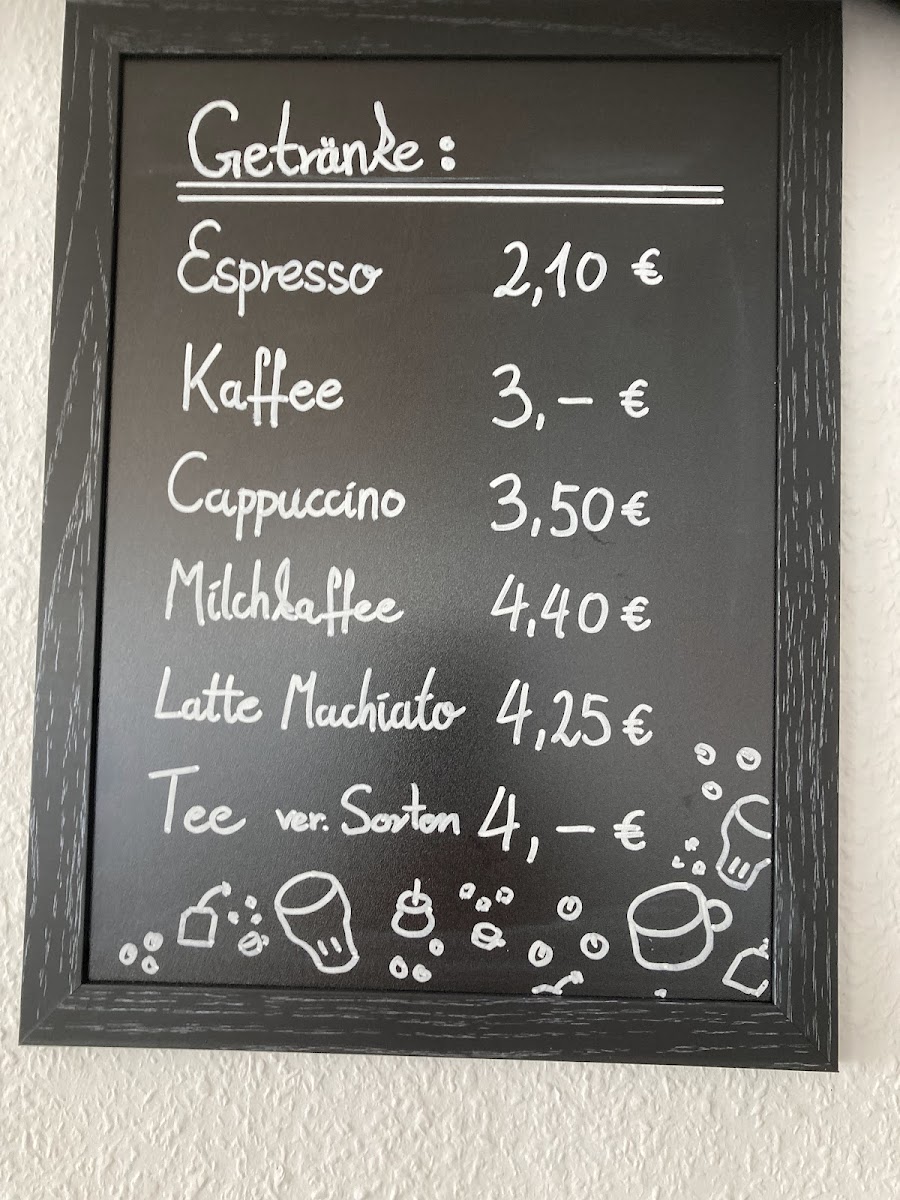 Getränke:
Espresso 2,10 €
Kaffee 3,- €
Cappuccino 3,50 €
Milchkaffee 4,40 €
Latte Machiato 4,25 €
Tee ver. Sorten 4,- €